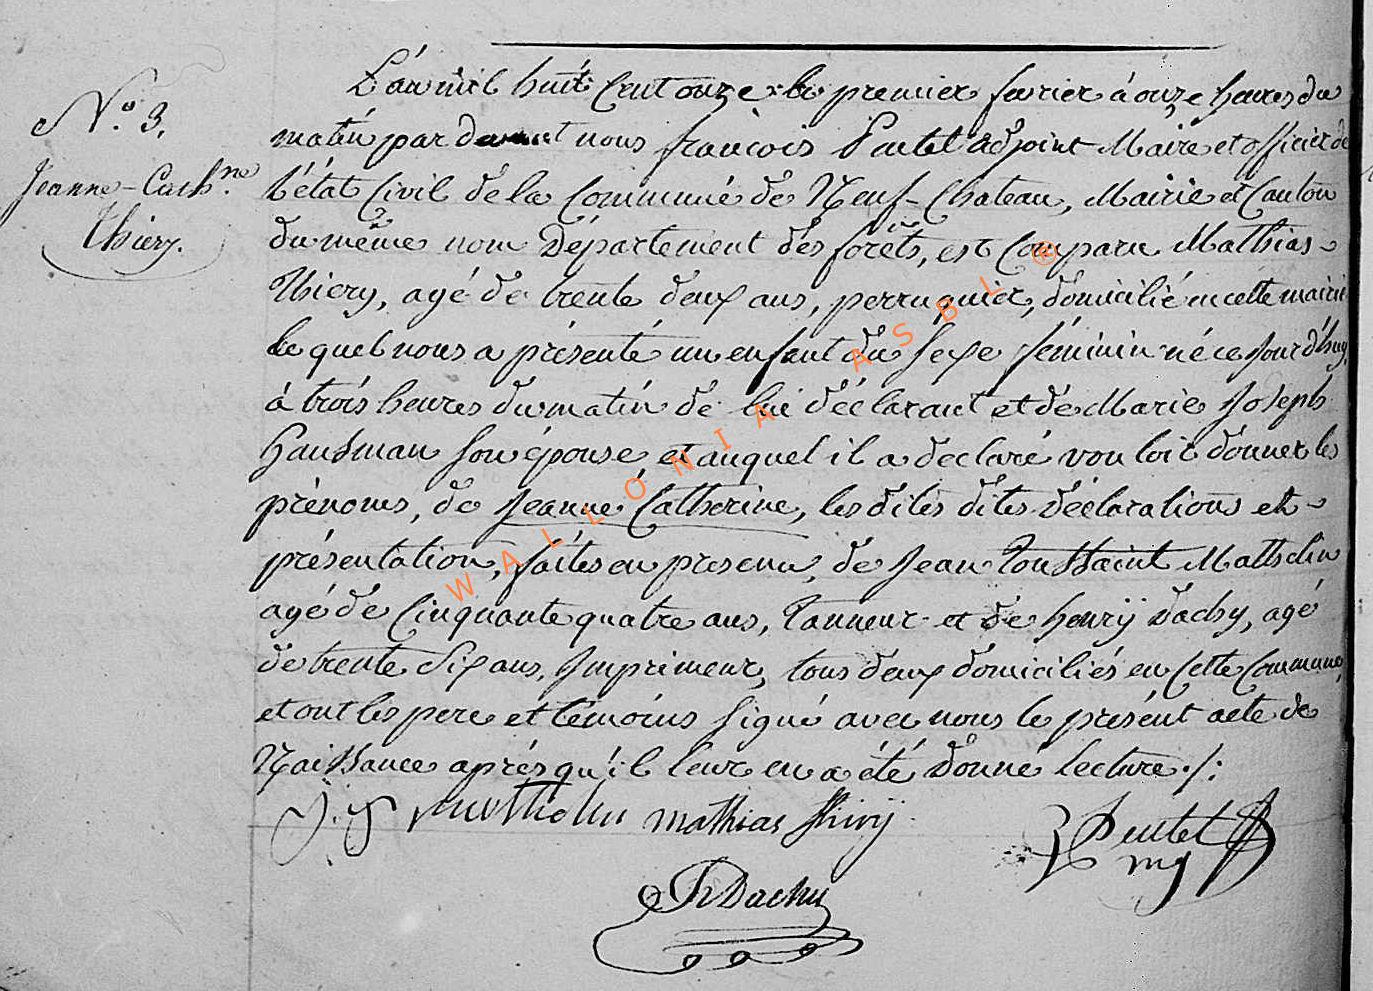 N.o 3.
Jeanne-Cath.ne
Thiery.
L'an mil huit Cent onze le premier fevrier à onze heures du
matin par devant nous françois Pentel adjoint Maire et officier de
L'état Civil de la Commune de Neuf-Chateau, Mairie et Canton
du même nom Département des forêts, est Comparu Mathias
Thiery, agé de trente deux ans, perruquier, domicilié en cette mairie
le quel nous a présenté un enfant du Sexe féminin né ce Jourd'huy
à trois heures du matin de lui déclarant et de Marie Joseph
Hausman Son épouse et auquel il a déclaré vouloir donner les
prénoms, de Jeanne Catherine, les dites dites déclarations et
présentation, faites en presence, de Jean Toussaint Mathelin
agé de Cinquante quatre ans, Tanneur et de henrÿ Dachy, agé
de trente Six ans, Imprimeur, tous deux domiciliés en Cette Commune
et ont les pere et témoins Signé avec nous le présent acte de
Naissance après qu'il leur en a été Donné lecture ./:
J. T Mathelin mathias thirÿ Pentel
mg
h Dachy
WALLONIA ASBL ®